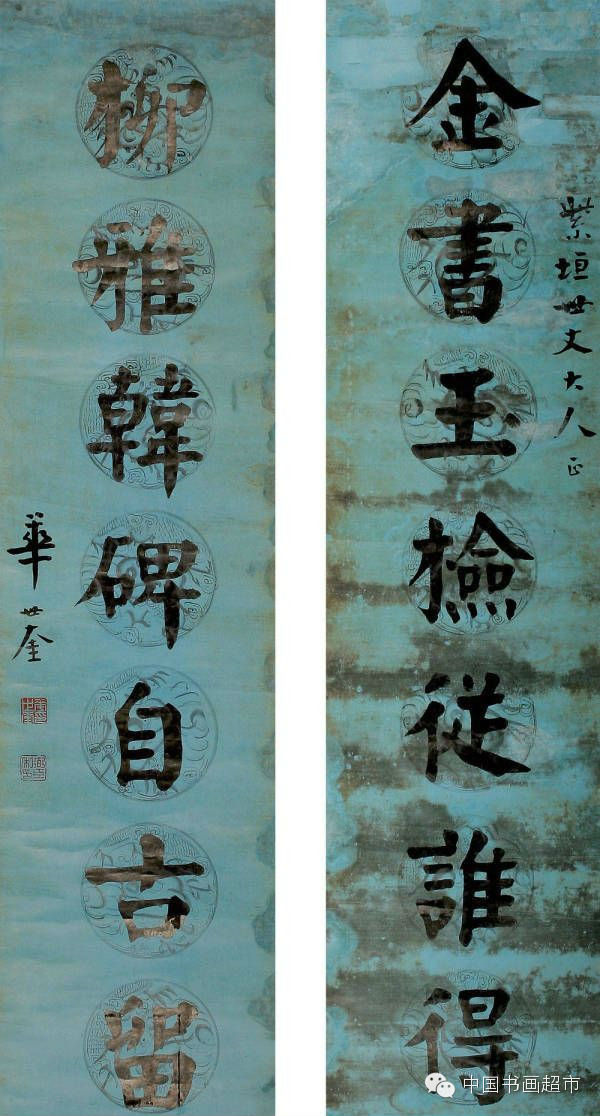 紫垣世丈大人正
金書玉檢従誰得
柳雅韓碑自古留
華世奎
中国书画超市